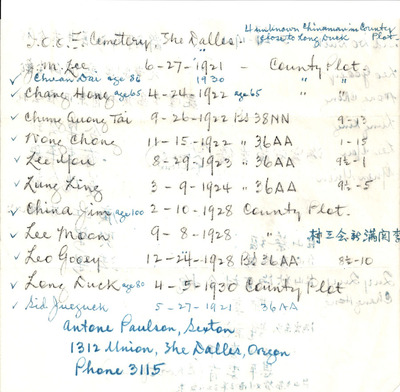 I.O.O.F. Cemetery, The Dalles.
4 unknown Chinaman in County Plot. close to Long Duck
Lee 6-27-1921 - County Plot
Chuan Dai age 86 1930 " "
Chang Hong age 65 4-24-1922 age 65 " "
Chung Quong Tai 9-26-1922 38NN 9-13
Wong Chong 11-15-1922 " 36AA 1-15
Lee You 8-29-1923 " 36AA 9½-1
Lung Ling 3-9-1924 " 36AA 9½-5
China Jim age 100 2-10-1928 County Plot.
Lee Moon 9-8-1928 " 村三会新滿閏李
Leo Gooey 12-24-1928 36AA 8½-10
Long Duck age 80 4-5-1930 County Plot
Sid Jueguck 5-27-1921 36AA
Antone Paulson, Sexton
1312 Union, The Dalles, Oregon
Phone 3115